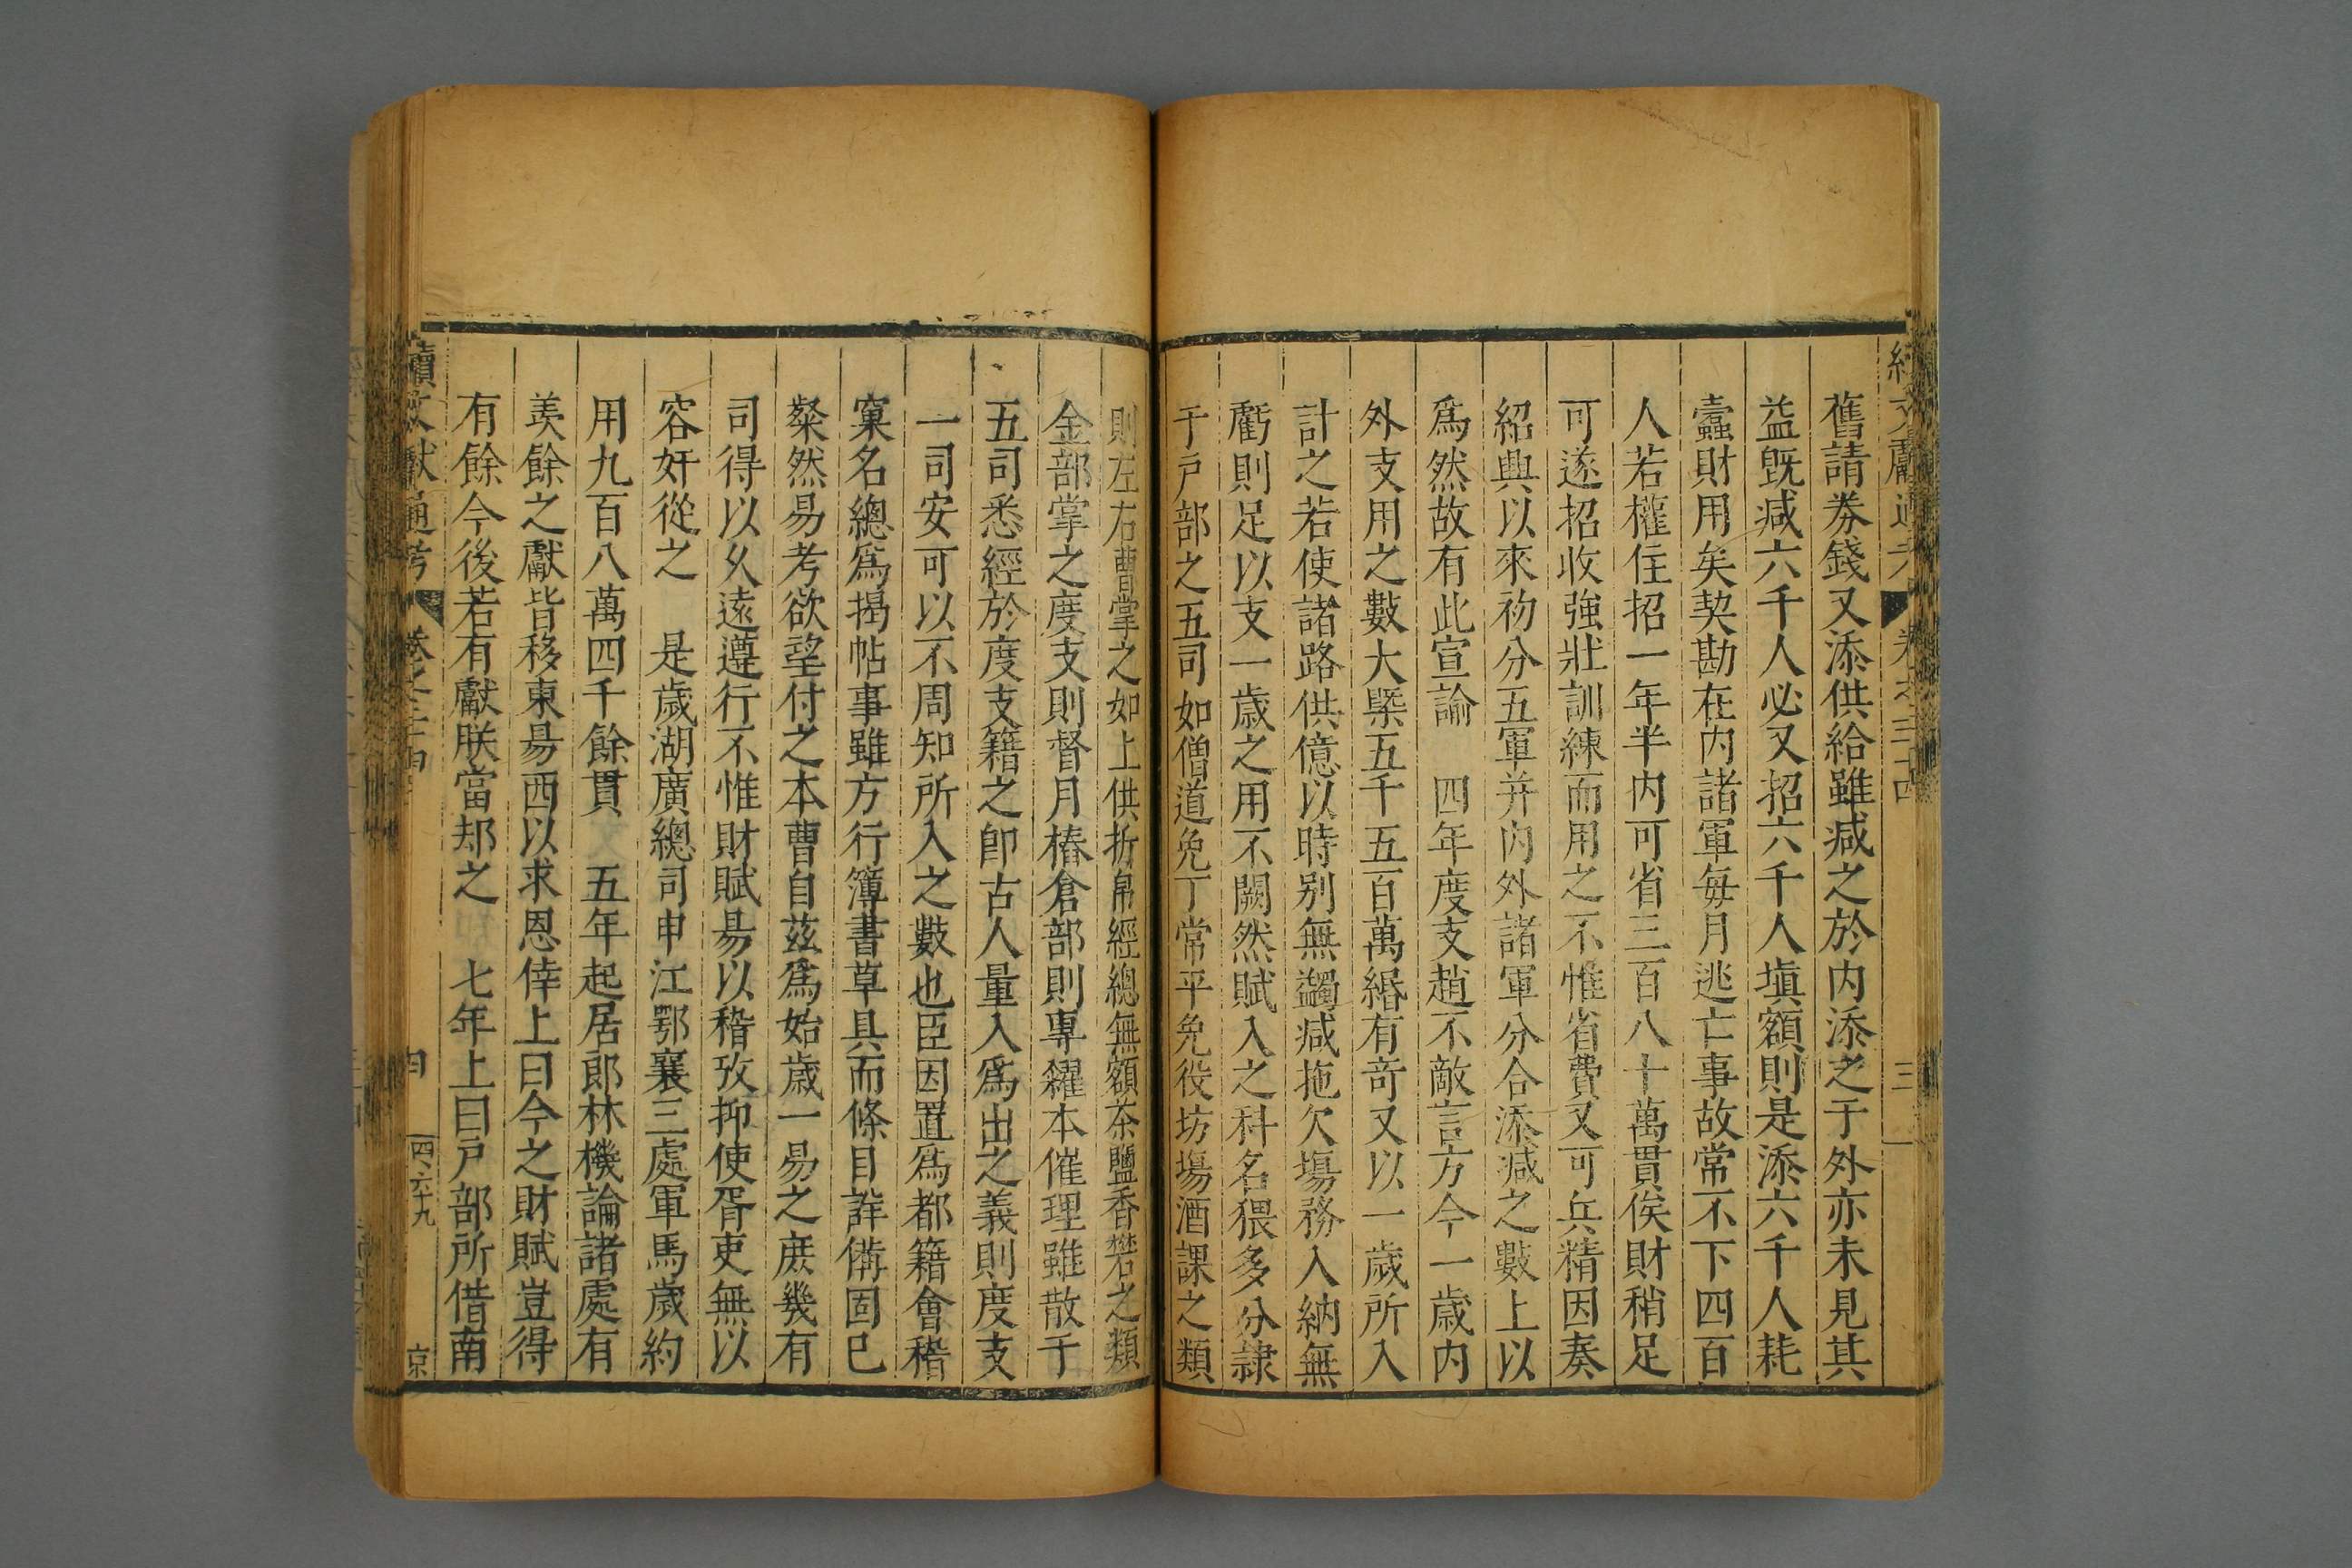 續文獻通考 卷之三十四 三
舊請券錢又添供給雖减之於内添之于外亦未見其
益既减六千人必又招六千人塡額則是添六千人耗
蠧財用矣契勘在内諸軍每月逃亡事故常不下四百
人若權住招一年半内可省三百八十萬貫俟財稍足
可遂招收強壯訓練而用之不惟省費又可兵精因奏
紹興以來初分五軍并内外諸軍分合添减之數上以
爲然故有此宣諭　四年度支趙不敵言方今一歲内
外支用之數大槩五千五百萬緡有奇又以一歲所入
計之若使諸路供億以時别無蠲减拖欠塲務入納無
虧則足以支一歲之用不闕然賦入之科名猥多分隷
于戶部之五司如僧道免丁常平免役坊塲酒課之類
則左右曹掌之如上供折帛經總無額茶鹽香礬之類
金部掌之度支則督月樁倉部則專糴本催理雖散于
五司悉經於度支籍之卽古人量入爲出之義則度支
一司安可以不周知所入之數也臣因置爲都籍會稽
窠名總爲揭帖事雖方行簿書草具而條目詳備固已
粲然易考欲望付之本曹自兹爲始歲一易之庶幾有
司得以乆遠遵行不惟財賦易以稽攷抑使胥吏無以
容奸從之　是歲湖廣總司申江鄂襄三處軍馬歲約
用九百八萬四千餘貫　五年起居郎林機論諸處有
羨餘之獻皆移東易西以求恩倖上曰今之財賦豈得
有餘今後若有獻朕當却之　七年上曰戶部所借南
續文獻通考 卷之三十四 四 四六十九 京